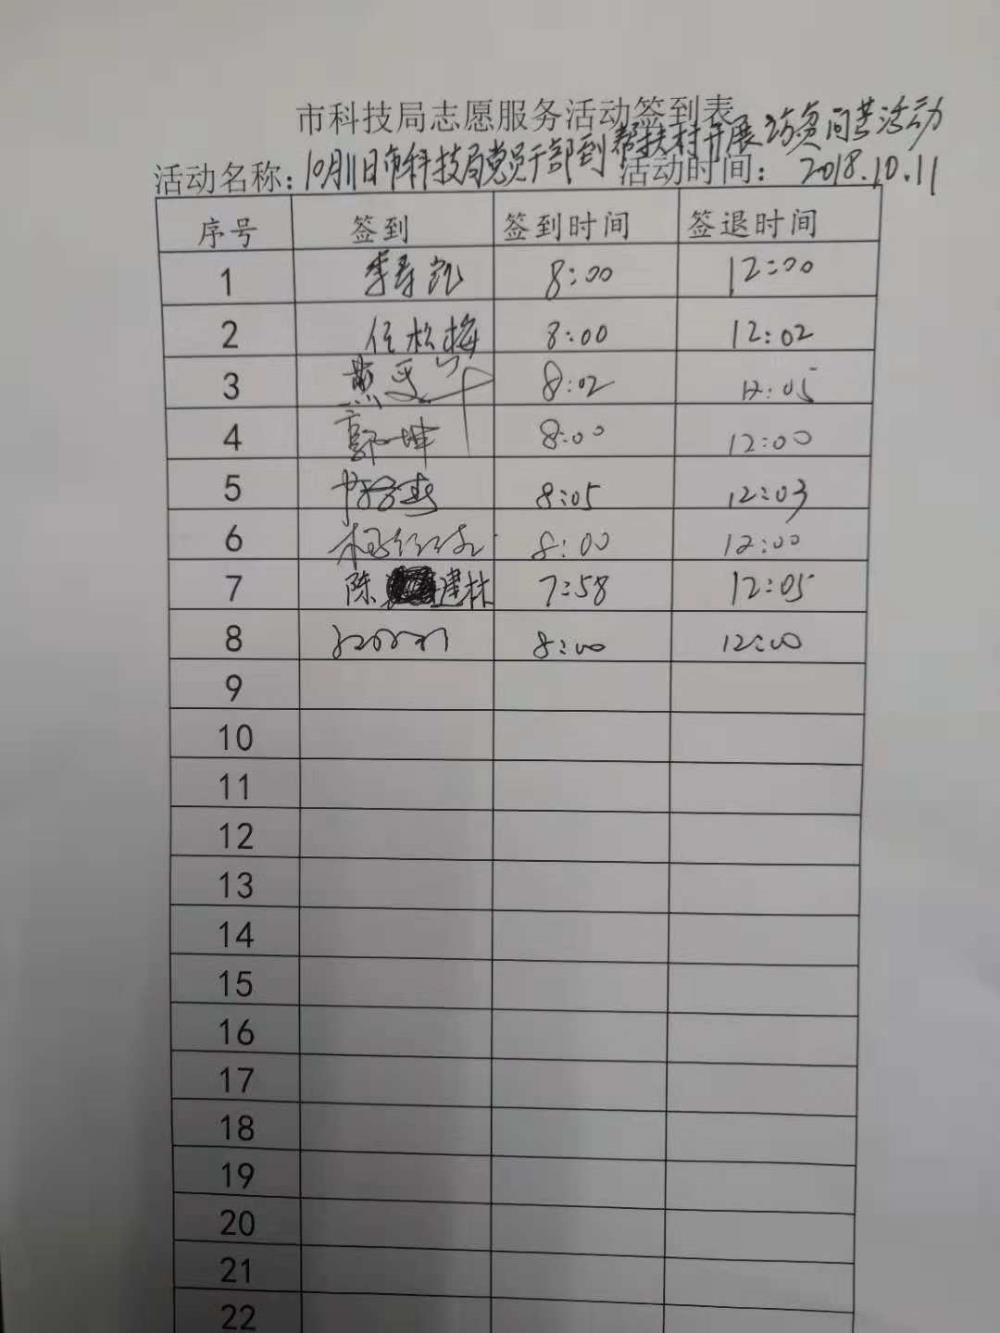 市科技局志愿服务活动签到表
活动名称：10月11日市科技局党员干部到帮扶村开展访贫问苦活动 活动时间： 2018.10.11
序号 签到 签到时间 签退时间
1 8:00 12:00
2 任松梅 8:00 12:02
3 8:02 12:05
4 郭坤 8:00 12:00
5 8:05 12:03
6 8:00 12:00
7 陈建林 7:58 12:05
8 8:00 12:00
9
10
11
12
13
14
15
16
17
18
19
20
21
22